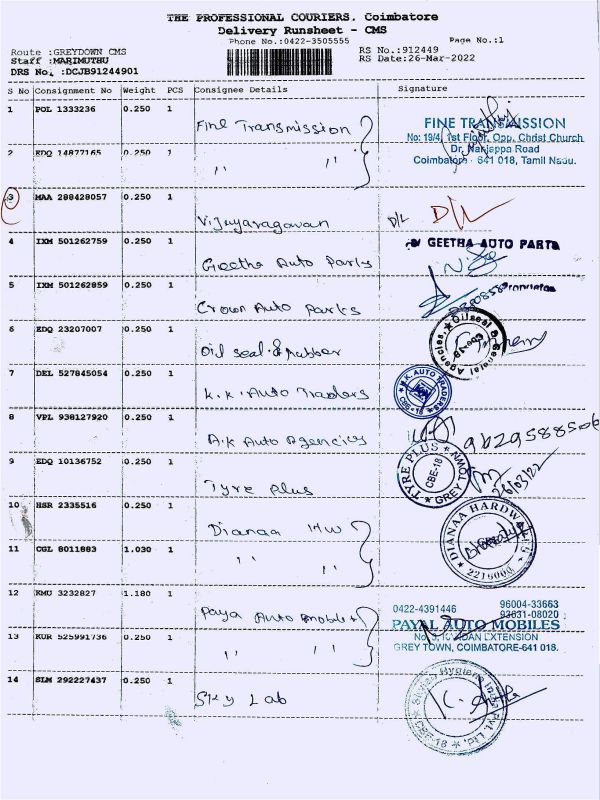 THE PROFESSIONAL COURIERS. Coimbatore
Delivery Runsheet - CMS
Phone No.:0422-3505555
Page No.:1
Route :GREYDOWN CMS
RS No.:912449
Staff :MARIMUTHU
RS Date:26-Mar-2022
DRS No. :DCJB91244901
S No Consignment No Weight PCS Consignee Details Signature
1 POL 1333236 0.250 1 Fine Transmission
FINE TRANSMISSION
No: 19/4, 1st Floor, Opp. Christ Church
Dr. Nanjappa Road
Coimbatore - 641 018, Tamil Nadu.
2 EDQ 14877165 0.250 1 ,, ,,
3 MAA 288428057 0.250 1 Vijayaragavan D/L D/L
4 IXM 501262759 0.250 1 Geetha Auto Parts
GEETHA AUTO PARTS
Proprietor
5 IXM 501262859 0.250 1 Crown Auto Parks
6 EDQ 23207007 0.250 1 Oil seal & rubber
Oilseal & General Agencies
7 DEL 527845054 0.250 1 K.K. Auto Traders
K.K. AUTO TRADERS
CBE-18
8 VPL 938127920 0.250 1 A.K Auto Agencies 9629588506
9 EDQ 10136752 0.250 1 Tyre Plus
TYRE PLUS
CBE-18
GREY TOWN
26/03/22
10 HSR 2335516 0.250 1 Dianaa HW
DIANAA HARDWARES
2216000
11 CGL 8011883 1.030 1 ,, ,,
12 KMU 3232827 1.180 1 Paya Auto mobiles
0422-4391446 96004-33663
93631-08020
PAYAL AUTO MOBILES
EXTENSION
GREY TOWN, COIMBATORE-641 018.
13 KUR 525991736 0.250 1 ,, ,,
14 SLM 292227437 0.250 1 Sky Lab
Hygiene India Pvt. Ltd.
CBE-18